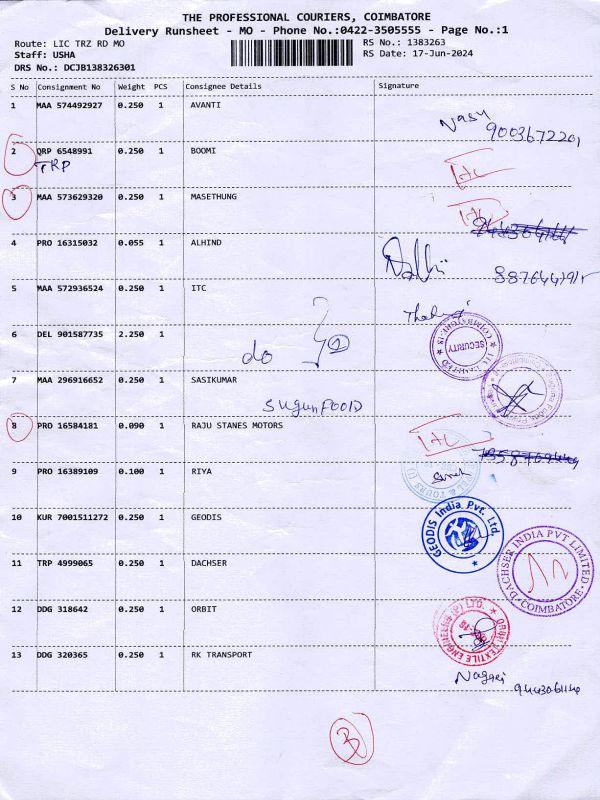 THE PROFESSIONAL COURIERS, COIMBATORE
Delivery Runsheet - MO - Phone No.:0422-3505555 - Page No.:1
Route: LIC TRZ RD MO RS No.: 1383263
Staff: USHA RS Date: 17-Jun-2024
DRS No.: DCJB138326301
S No Consignment No Weight PCS Consignee Details Signature
1 MAA 574492927 0.250 1 AVANTI
9003672201
2 QRP 6548991 0.250 1 BOOMI
TRP
3 MAA 573629320 0.250 1 MASETHUNG
4 PRO 16315032 0.055 1 ALHIND
5 MAA 572936524 0.250 1 ITC
ITC LIMITED SECURITY COIMBATORE-18
6 DEL 901587735 2.250 1
do
7 MAA 296916652 0.250 1 SASIKUMAR
8 PRO 16584181 0.090 1 RAJU STANES MOTORS
9 PRO 16389109 0.100 1 RIYA
10 KUR 7001511272 0.250 1 GEODIS
GEODIS India Pvt. Ltd.
11 TRP 4999065 0.250 1 DACHSER
DACHSER INDIA PVT LIMITED COIMBATORE
12 DDG 318642 0.250 1 ORBIT
13 DDG 320365 0.250 1 RK TRANSPORT
3